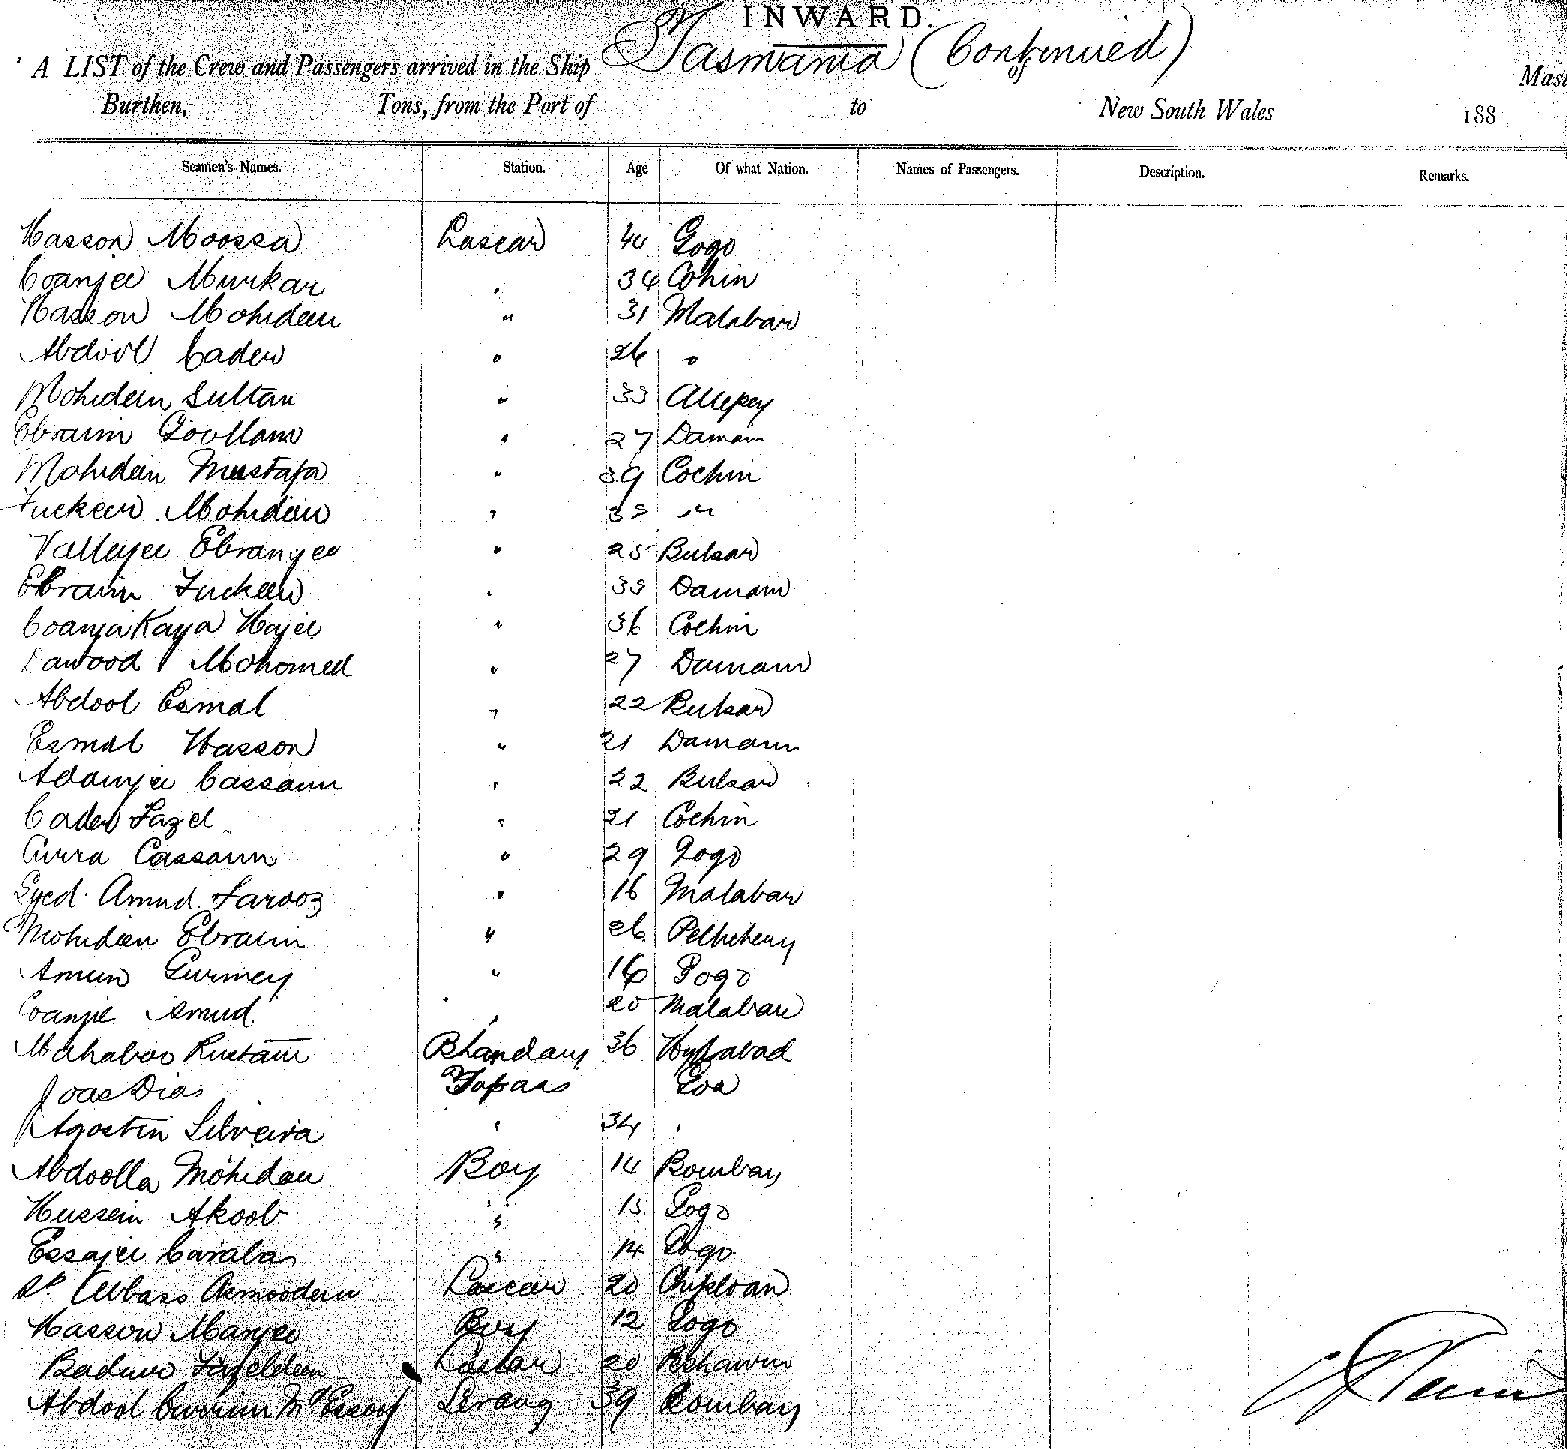 INWARD.
A LIST of the Crew and Passengers arrived in the Ship Tasmania (Continued) of
Burthen, Tons, from the Port of to New South Wales 188
Seamen's Names. Station. Age Of what Nation. Names of Passengers. Description. Remarks.
Hasson Moossa Lascar 40 Gogo
Coanjee Murkar 34 Cohin
Hasson Mohideen " 31 Malabar
Abdool Cader " 26 "
Mohideen Sultan " 33 Allepey
Ebraim Goollam " 27 Damam
Mohideen Mustafa " 39 Cochin
Fuckeer Mohideen " 35 "
Valleyjee Ebramjee " 25 Bulsar
Ebraim Fuckeer " 33 Damam
Coanja Kaya Hajee " 36 Cochin
Dawood Mohomed " 27 Damam
Abdool Esmal " 22 Bulsar
Esmal Hasson " 21 Damam
Adamjee Cassam " 22 Bulsar
Cader Fazel " 21 Cochin
Cassam " 29 Gogo
Syed Amud Farooz " 16 Malabar
Mohideen Ebraim " 26
Amun Gurmey " 16 Gogo
Coanjie Amud " 20 Malabar
Rustam Bhandary 36
Joas Dias Topaas Goa
Agostin Silveira " 34 "
Abdoolla Mohideen Boy 14 Bombay
Hussein Akoob " 15 Gogo
Essajee " 14 Gogo
Abbass Lascar 20
Hasson Manjee Boy 12 Gogo
Lascar 20
Abdool Serang 39 Bombay